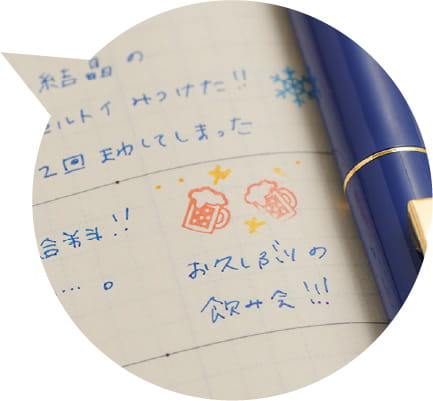 結晶の
セルトイ みつけた!!
2回 まわしてしまった
...。
お久しぶりの
飲み会!!!